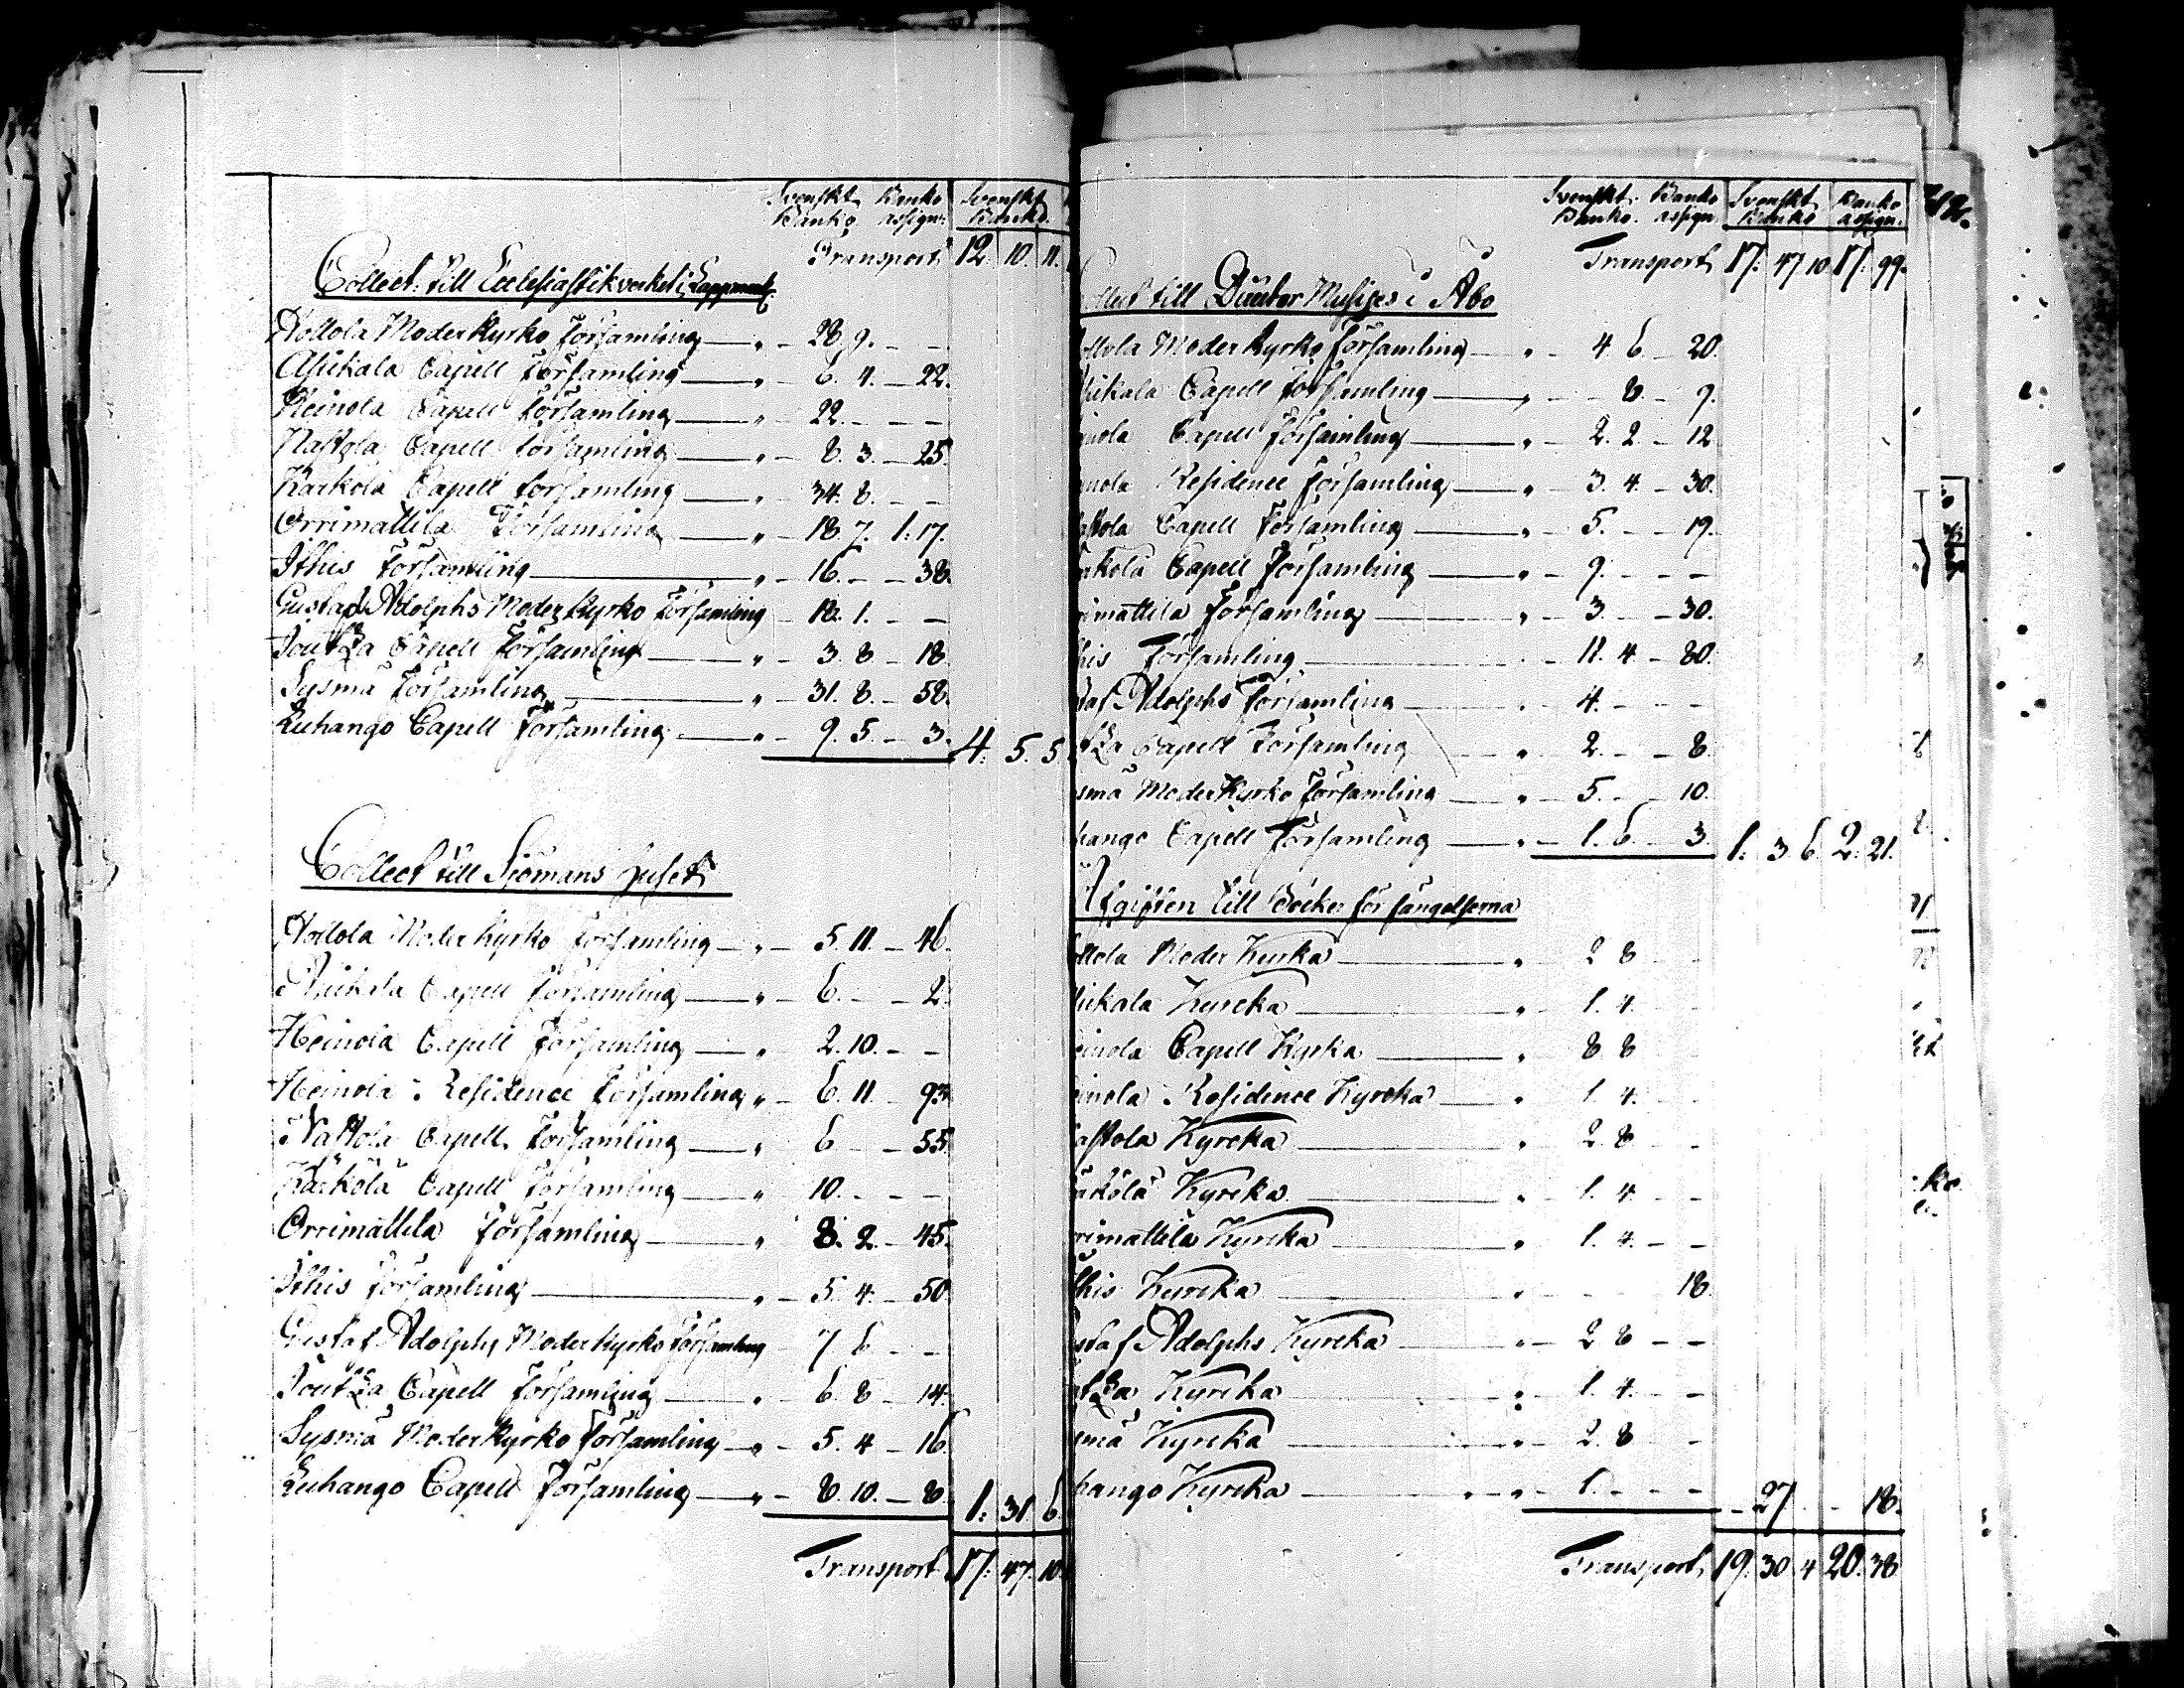 Svenskt Banko Svenskt
Banko. assign: Banko.
Transport 12. 10. 11.
Collect. till Ecclesiastikverket i Lappmark.
Hollola Moderkyrko Församling — „ — 28. 9. — —
Asikala Capell Församling — „ — 6. 4. — 22.
Heinola Capell Församling — „ — 22. — — —
Nastola Capell Församling — „ — 8. 3. — 25.
Kärkölä Capell Församling — „ — 34. 8. — —
Orrimattila Församling — „ — 18. 7. 1. 17.
Ithis Församling — „ — 16. — — 38.
Gustaf Adolphs Moderkyrko Församling — 18. 1. — —
Joutza Capell Församling — „ — 3. 8. — 18.
Sysmä Församling — „ — 31. 8. — 58.
Luhango Capell Församling — „ — 9. 5. — 3. 4. 5. 5.
Collect till Sjömans Huset
Hollola Moderkyrko Församling — „ — 5. 11. — 46.
Asikala Capell Församling — „ — 6. — — 2.
Heinola Capell Församling — „ — 2. 10. — —
Heinola Residence Församling „ — 6. 11. — 93.
Nastola Capell Församling — „ 6 — — 55.
Kärkölä Capell Församling — „ 10. — — —
Orrimattila Församling — „ 8. 2. — 45.
Ithis Församling — „ — 5. 4. — 50.
Gustaf Adolphs Moderkyrko Församling 7 6 — —
Joutza Capell Församling — „ — 6. 8 — 14.
Sysmä Moderkyrko Församling — „ — 5. 4 — 16
Luhango Capell Församling — „ — 8. 10. — 8. 1. 31. 6.
Transport 17. 47. 10.
Svenskt Banko Svenskt Banko
Banko. assign Banko assign.
Transport 17. 47 10 17. 99.
ollect till Musices i Åbo
ollola Moder Kyrko Församling — „ — 4. 6. — 20.
sikala Capell Församling — „ — — 8. — 9.
inola Capell Församling — „ — 2. 2. — 12
inola Residence Församling — „ — 3. 4. — 30.
astola Capell Församling — „ — 5. — — 19.
rkölä Capell Församling — „ — 9. — — —
rimattila Församling — „ — 3. — — 30.
his Församling — 11. 4. — 80.
taf Adolphs Församling — 4. — — —
tza Capell Församling — „ — 2. — — 8.
smä ModerKyrko Församling — „ — 5. — — 10.
hango Capell Församling — „ — 1. 6. — 3. 1. 3 6. 2. 21.
Afgiften till Böcker för fängelserna
ollola Moder Kyrka — „ 2 8
sikala Kyrcka — „ — 1. 4.
einola Capell Kyrka — „ 8 8
einola Residence Kyrcka — „ 1. 4.
astola Kyrcka — „ 2. 8. —
ärkölä Kyrcka — „ 1. 4 — —
rrimattila Kyrcka — „ 1. 4. — —
this Kyrcka — „ — — — 18.
ustaf Adolphs Kyrcka — „ — 2 8 — —
utza Kyrcka — „ — 1. 4. — —
smä Kyrcka — „ — 2. 8 —
hango Kyrcka — „ — „ — 1. — — — — 27 — — 18.
Transport 19. 30 4 20. 38